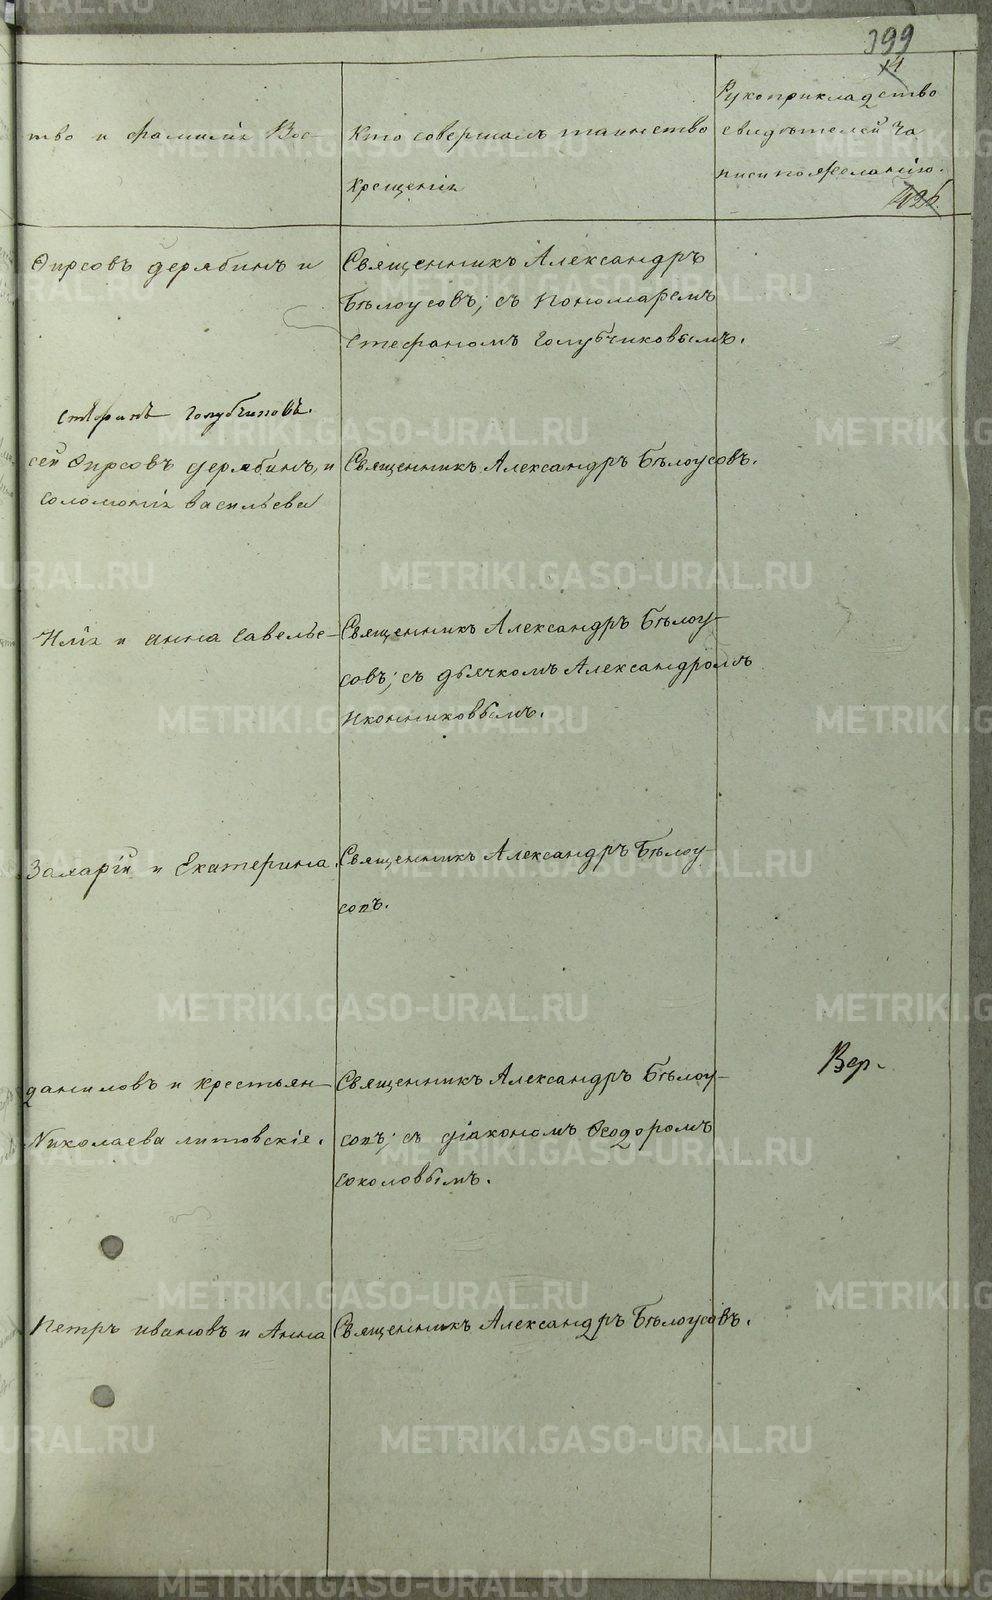 399
14
тво и фамилія Вос-
Кто совершалъ таинство
крещенія
Рукоприкладство
свидѣтелей за
писи по желанію.
Фирсовъ Дерябинъ и
Священникъ Александръ
Бѣлоусовъ; съ пономаремъ
Стефаномъ Голубчиковымъ.
Голубчиковъ.
сей Фирсовъ Дерябинъ, и
Соломонія Васильева
Священникъ Александръ Бѣлоусовъ.
Илія и Анна Савелье-
Священникъ Александръ Бѣлоу-
совъ; съ дьячкомъ Александромъ
Иконниковымъ.
и Екатерина
Священникъ Александръ Бѣлоу
совъ.
Даниловъ и крестьян-
Николаева Литовскіе.
Священникъ Александръ Бѣлоу-
совъ; съ діакономъ Ѳеодоромъ
Соколовымъ.
Вер.
Петръ Ивановъ и Анна
Священникъ Александръ Бѣлоусовъ.
METRIKI.GASO-URAL.RU